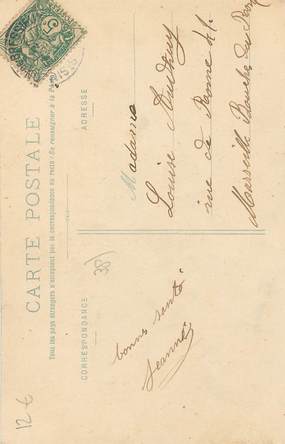 CARTE POSTALE
Tous les pays étrangers n'acceptent pas la correspondance au recto (Se renseigner à la Poste)
CORRESPONDANCE
ADRESSE
38
bonne santé
Jeanne
Madame
Louise
rue de Rome 41
Marseille Bouches du
12 €